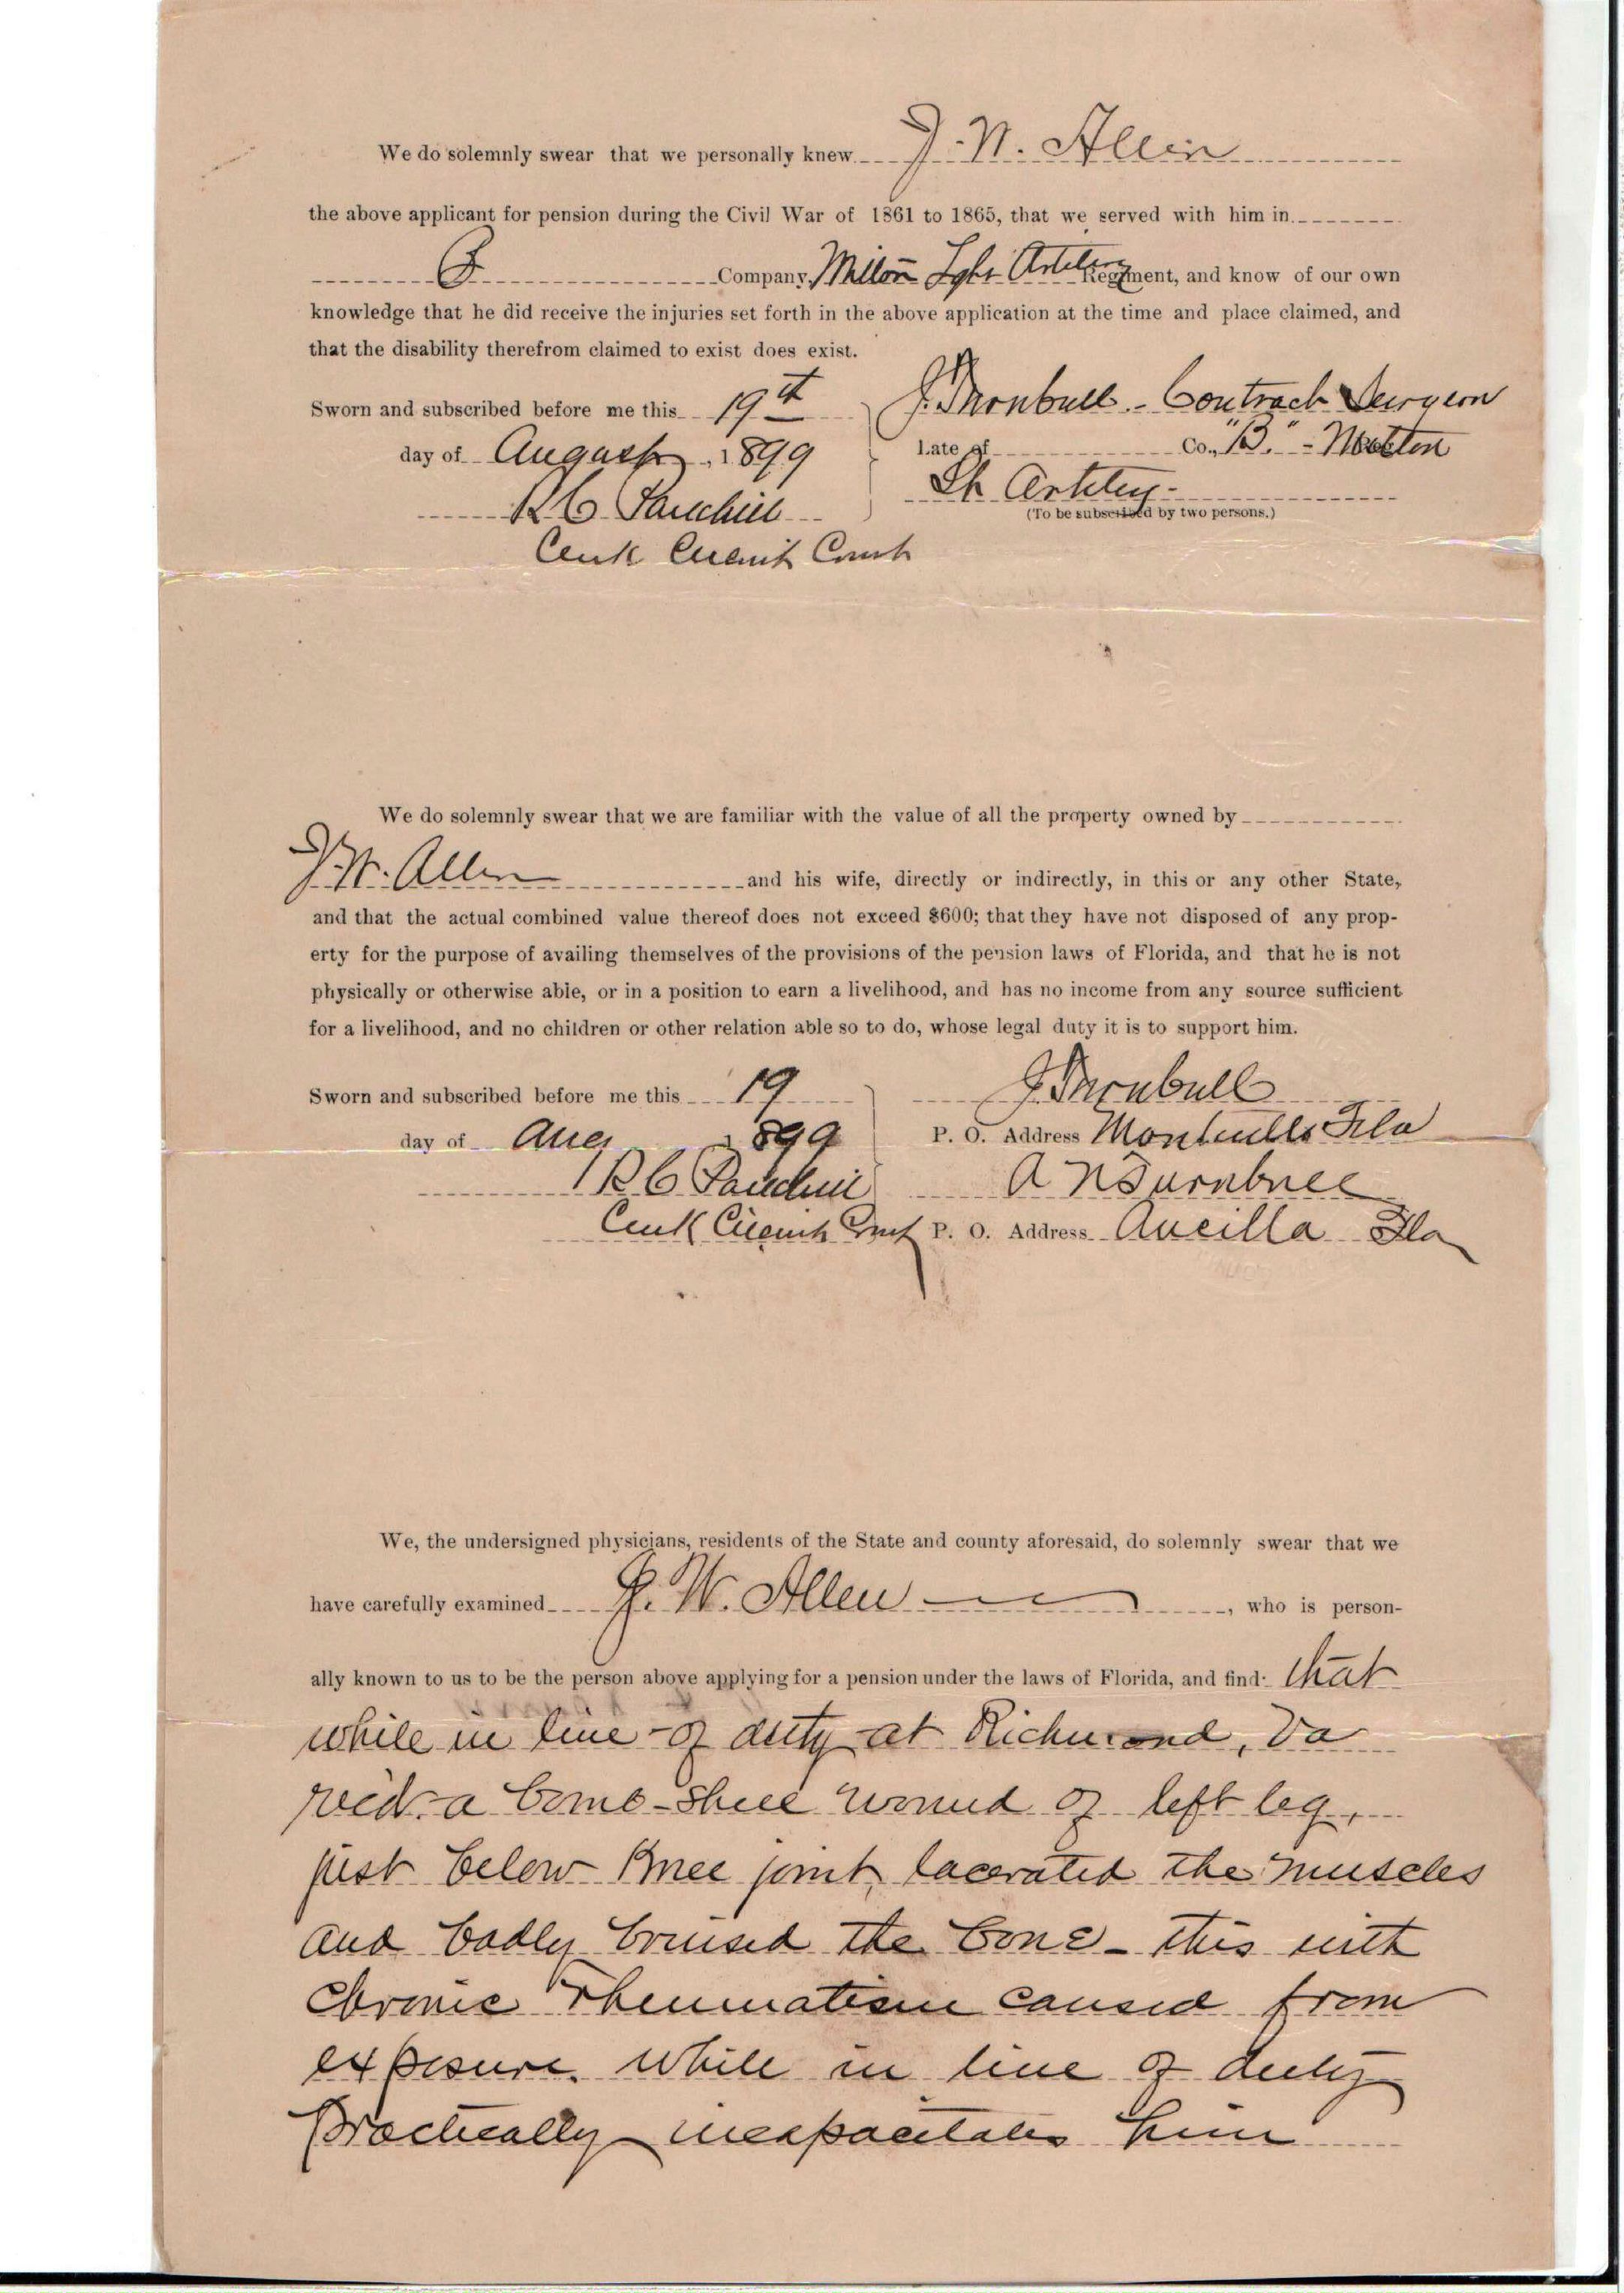 We do solemnly swear that we personally knew J. W. Allen
the above applicant for pension during the Civil War of 1861 to 1865, that we served with him in
Company, Milton Lght Artilery Regiment, and know of our own
knowledge that he did receive the injuries set forth in the above application at the time and place claimed, and
that the disability therefrom claimed to exist does exist.
Sworn and subscribed before me this 19th
day of August, 1899
R C
Clerk Circuit Court
J. Turnbull - Contract Surgeon
Late of Co., "B." - Milton
Lh Artilery
(To be subscribed by two persons.)
We do solemnly swear that we are familiar with the value of all the property owned by
J. W. Allen and his wife, directly or indirectly, in this or any other State,
and that the actual combined value thereof does not exceed $600; that they have not disposed of any prop-
erty for the purpose of availing themselves of the provisions of the pension laws of Florida, and that he is not
physically or otherwise able, or in a position to earn a livelihood, and has no income from any source sufficient
for a livelihood, and no children or other relation able so to do, whose legal duty it is to support him.
Sworn and subscribed before me this 19
day of Aug 1899
R C
Clerk Circuit Court
J Turnbull
P. O. Address Monticello Fla
A N Turnbull
P. O. Address Aucilla Fla
We, the undersigned physicians, residents of the State and county aforesaid, do solemnly swear that we
have carefully examined J. W. Allen, who is person-
ally known to us to be the person above applying for a pension under the laws of Florida, and find: that
while in line of duty at Richmond, Va
recd. a bomb-shell wound of left leg,
just below Knee joint, lacerated the muscles
and badly bruised the bone - this with
Chronic Rheumatism caused from
exposure while in line of duty
practically incapacitates him